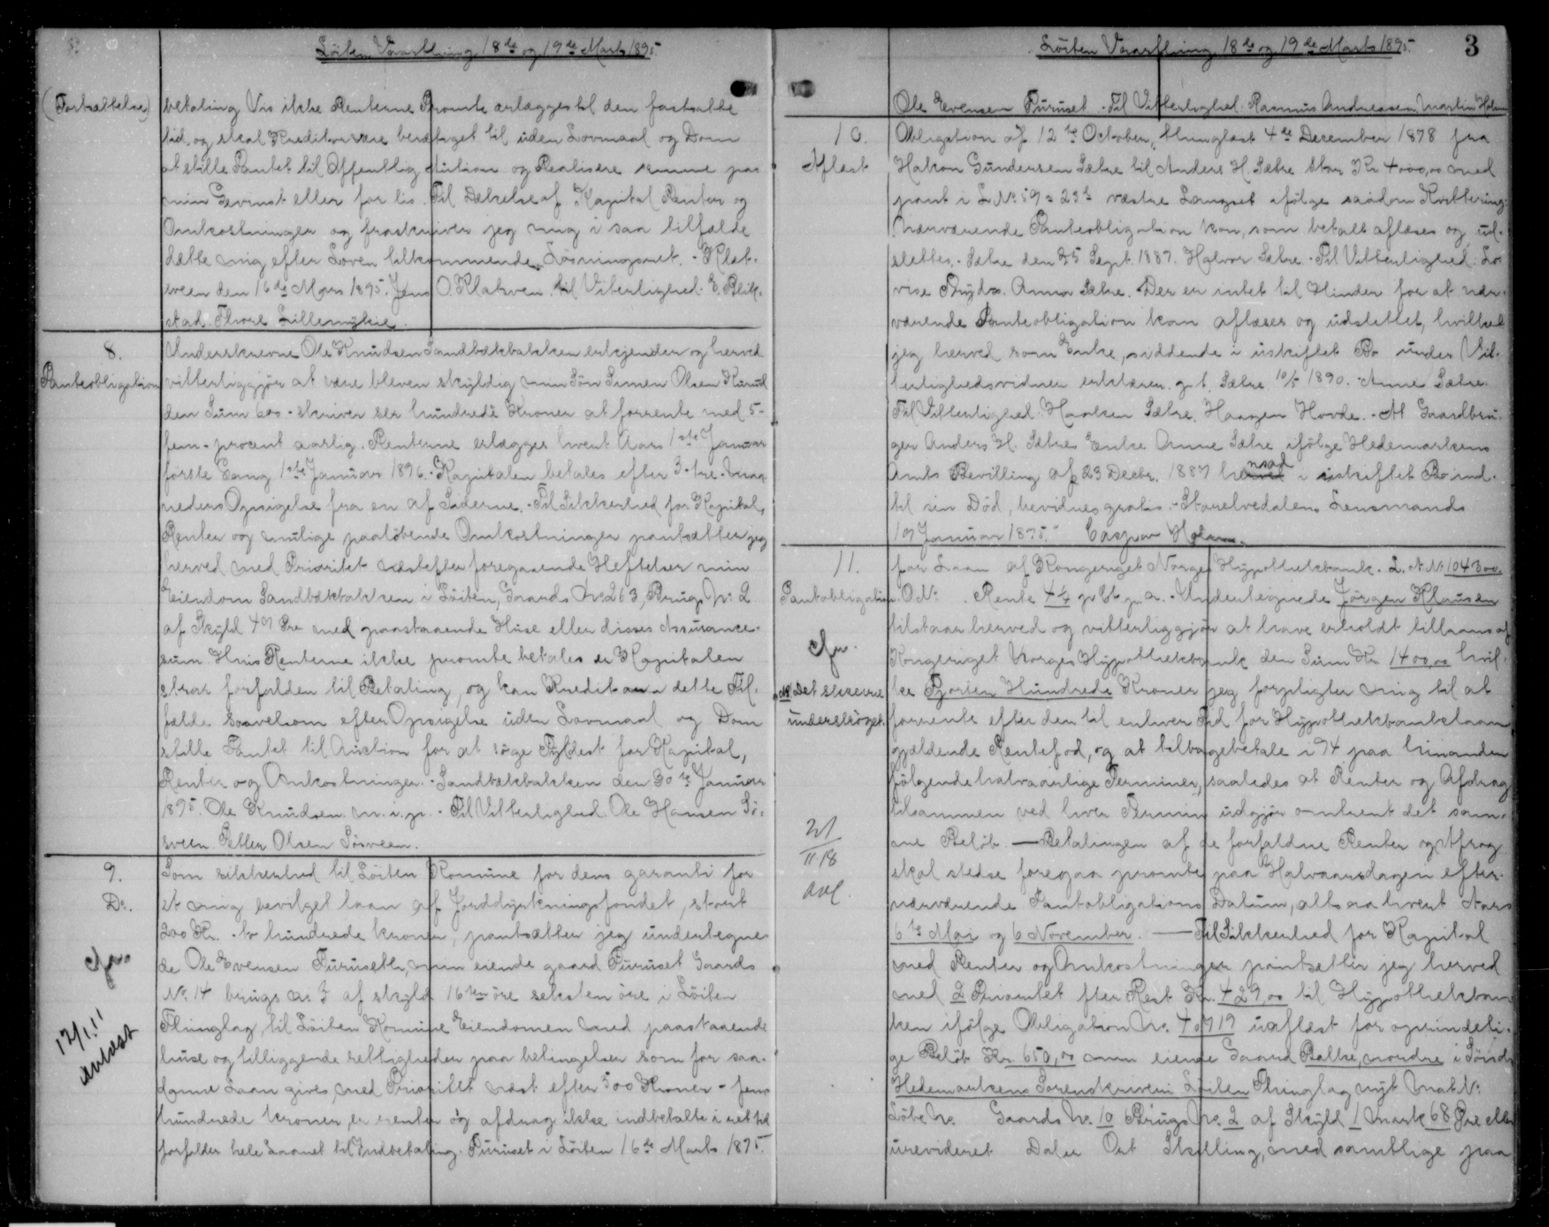 Löiten Vaarthing 18de og 19de Marts 1895
(Fortsættelse) betaling Vis ikke Renterne Promte erlægges til den fastsatte
tid, og skal Kreditor være berettiget til uden Lovmaal og Dom
at stille Pantet til Offentlig Auktion og Realisere samme paa
min Gevinst eller for lis. Til Dækelse af Kapital Renter og
Omkostninger og fraskriver jeg mig i saa tilfælde
dette mig efter Loven tilkommende Lösningsret. - Klæt-
sveen den 16de Mars 1895. Jens O. Klatsven. til Viterlighed. E. Blik-
stad. Thore Lillemykie.
8.
Panteobligation
Underskrevne Ole Knudsen Sandbækbakken erkjender og herved
vitterliggjör at være bleven skyldig min Sön Simen Olsen Kurud
den Sum 600 - skriver sex hundrede Kroner at forrente med 5 -
fem - procent aarlig. Renterne erlægges hvert Aars 1ste Januar
förste Gang 1ste Januar 1896. - Kapitalen betales efter 3 - tre - Maa-
neders Opsigelse fra en af Siderne. - Til Sikkerhed for Kapital,
Renter og mulige paalöbende Omkostninger pantsætter jeg
herved med Prioritet næstefter foregaaende Heftelser min
Eiendom Sandbækbakken i Löiten, Gaards No 263, Brugs No 2
af Skyld 49 Öre med paastaaende Huse eller disses Assurance-
sum Hvis Renterne ikke promte betales er Kapitalen
strax forfalden til Betaling, og kan Kreditor i dette Til-
fælde saavelsom efter Opsigelse uden Lovmaal og Dom
stille Pantet til Auktion for at söge Fyldest for Kapital,
Renter og Omkostninger. - Sandbækbakken den 30te Januar
1895. Ole Knudsen m. i. p. - Til Vitterlighed Ole Hansen Sö-
sveen Petter Olsen Sösveen.
9.
Do.
12/1.11
avlæst
Som sikkerhed til Löiten Komune for dens garanti for
et mig bevilget laan af Jorddyrkningsfondet, stort
200 Kr. to hundrede kroner, pantsætter jeg undertegne-
de Ole Evensen Furuseth, min eiende gaard Furuset Gaards
No. 14 brugs No 3 af skyld 16 öre seksten öre i Löiten
Thinglag, til Löiten Komune Eiendomen med paastaaende
huse og tilliggende rettigheder paa betingelser som for saa-
danne Laan gives, med Prioritet næst efter 500 Kroner - fem
hundrede kroner, er renter og afdrag ikke indbetalte i ret tid
forfalder hele Laanet til Indbetaling. Furuset i Löiten 16de Marts 1895.
Löiten Vaarthing 18de og 19de Marts 1895
3
Ole Evensen Furuset. - Til Vitterlighed. Rasmus Andreassen Martin Holm
10.
Aflæst
Obligation af 12te October, thinglæst 4de December 1878 fra
Hakon Gundersen Sætre til Anders H. Sætre stor Kr 4000,00 med
pant i L. No. 59 a 23 b vestre Langset ifölge saadan Kvittering:
Nærværende Panteobligation kan, som betalt aflæses og ud-
slettes. - Sætre den 25 Sept. 1887. Halvor Sætre. - Til Vitterlighed: Lo-
vise Anna Sætre. Der er intet til Hinder for at nær-
værende Panteobligation kan aflæses og udslettet, hvilket
jeg herved som Enke, siddende i uskiftet Bo under Vit-
terlighedsvidner erklærer. p. t. Sætre 10/5 1890. - Anne Sætre.
Til Vitterlighed. Haaken Sætre. Haagen Hovde. - At Gaardbru-
ger Anders H. Sætres Enke Anne Sætre ifölge Hedemarkens
Amts Bevilling af 23 Decbr. 1887 hensad i uskiftet Bo ind-
til sin Död, bevidnes gratis. - Storelvedalens Lensmands
19 Januar 1895. Caspar Holm.
11.
Pantobligation
Det skrevne
understöget.
21/
11.18
avl.
for Laan af Kongeriget Norges Hypothekbank. L. A. No 104300.
O. No. Rente 4¼ p. Ct. p. a. - Undertegnede Jörgen Klausen
tilstaar herved og vitterliggjör at have erholdt tillaans af
Kongeriget Norges Hypothekbank den Sum Kr 1400,00 hvil-
ke Fjorten Hundrede Kroner jeg forpligter mig til at
forrente efter den til enhver Tid for Hypothekbanklaan
gjældende Rentefod, og at tilbagebetale i 74 paa hinanden
fölgende halvaarlige Terminer, saaledes at Renter og Afdrag
tilsammen ved hver Termin udgjör omtrent det sam-
me Belöb. — Betalingen af de forfaldne Renter og Afdrag
skal stedse foregaa promte paa Halvaarsdagen efter
nærværende Pantobligations Datum, altsaa hvert Aars
6te Mai og 6 November. — Til Sikkerhed for Kapital
med Renter og Omkostninger pantsætter jeg herved
med 2 Prioritet efter Rest Kr. 429,00 til Hypothekban-
ken ifölge Obligation No. 40719 uaflæst for oprindeli-
ge Belöb Kr. 650,00 min eiende Gaard Balke, nordre i Söndre
Hedemarkens Sorenskriveri Löiten Thinglag nyt Matr. No.
Löbe No. Gaards No. 10 Brugs No. 2 af Skyld 1 Mark 68 Öre eller
urevideret Daler Ort Skilling, med samtlige paa